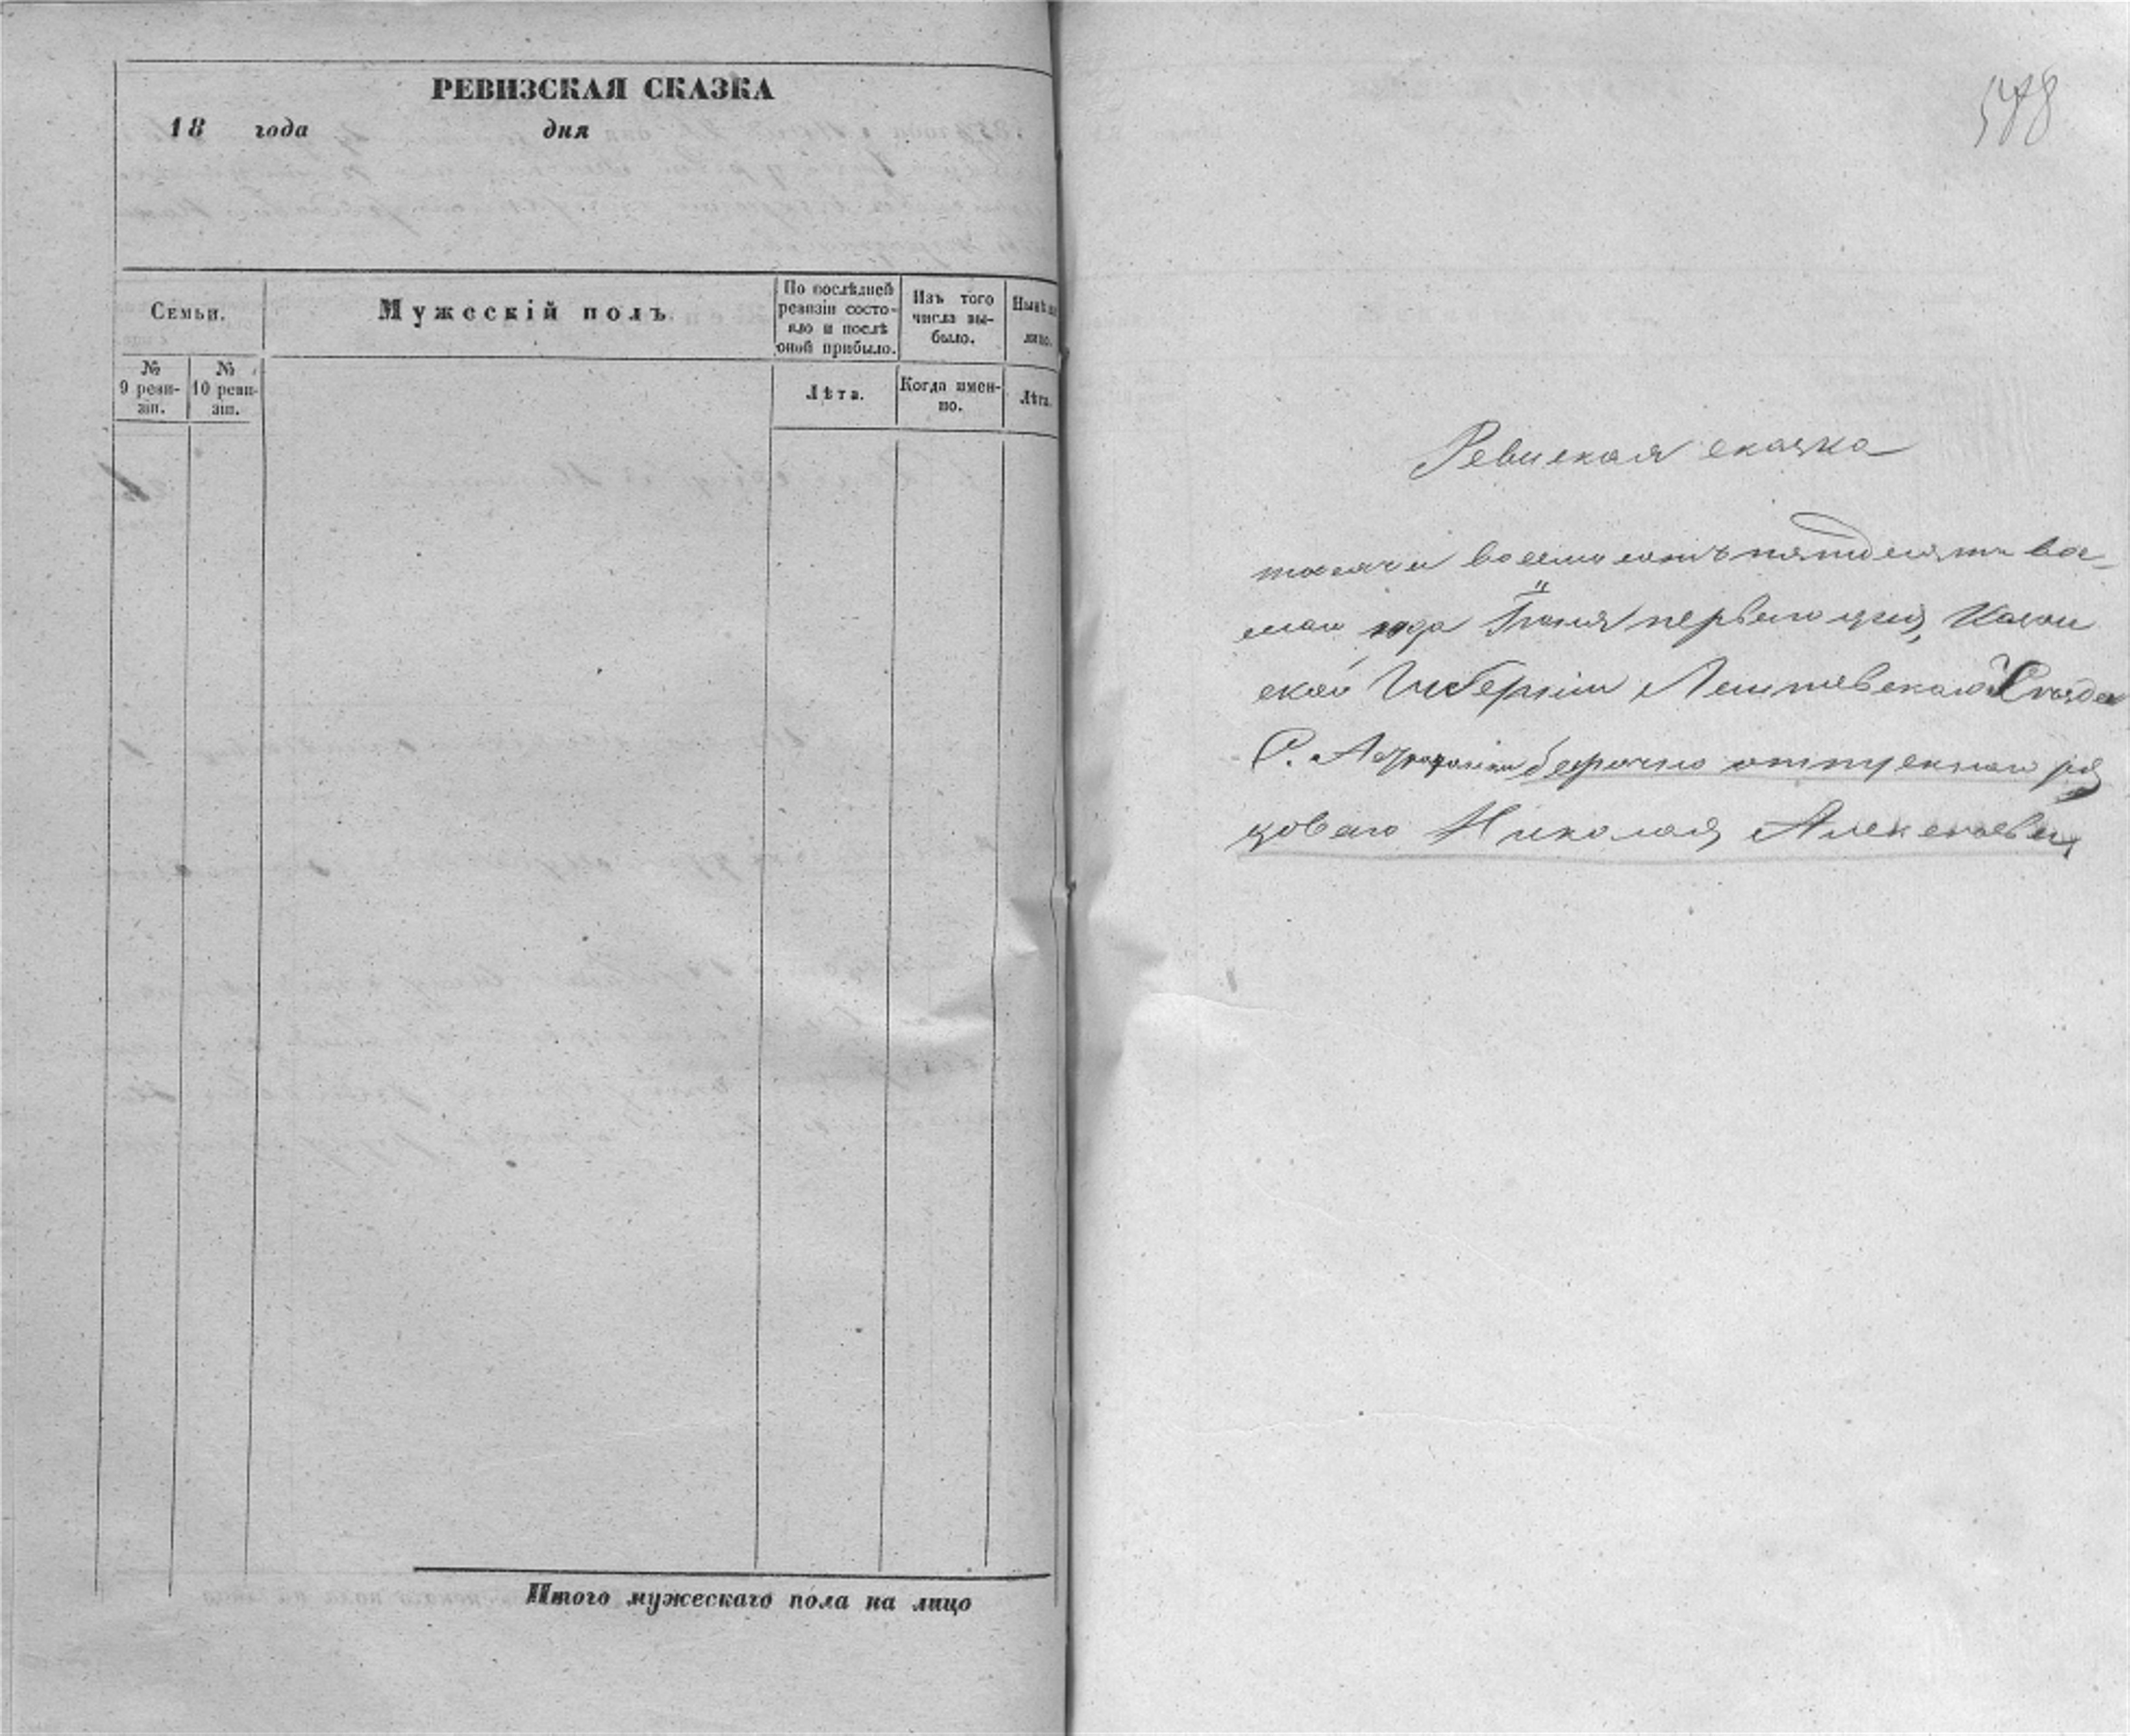 РЕВИЗСКАЯ СКАЗКА
18 года дня
Семьи.
Мужескій полъ
По послѣдней ревизіи состояло и послѣ оной прибыло.
Изъ того числа выбыло.
№ 9 ревизіи.
№ 10 ревизіи.
Лѣта.
Когда именно.
Лѣта.
Итого мужескаго пола на лицо
578
Ревиская сказка
тысяча восемьсотъ пятдесятъ вос-
маго года Іюня перваго дня, Казан
ской Губерніи Лаишевскаго Уѣзда
С. безсрочно отпускнаго ря
доваго Николая Алексѣева